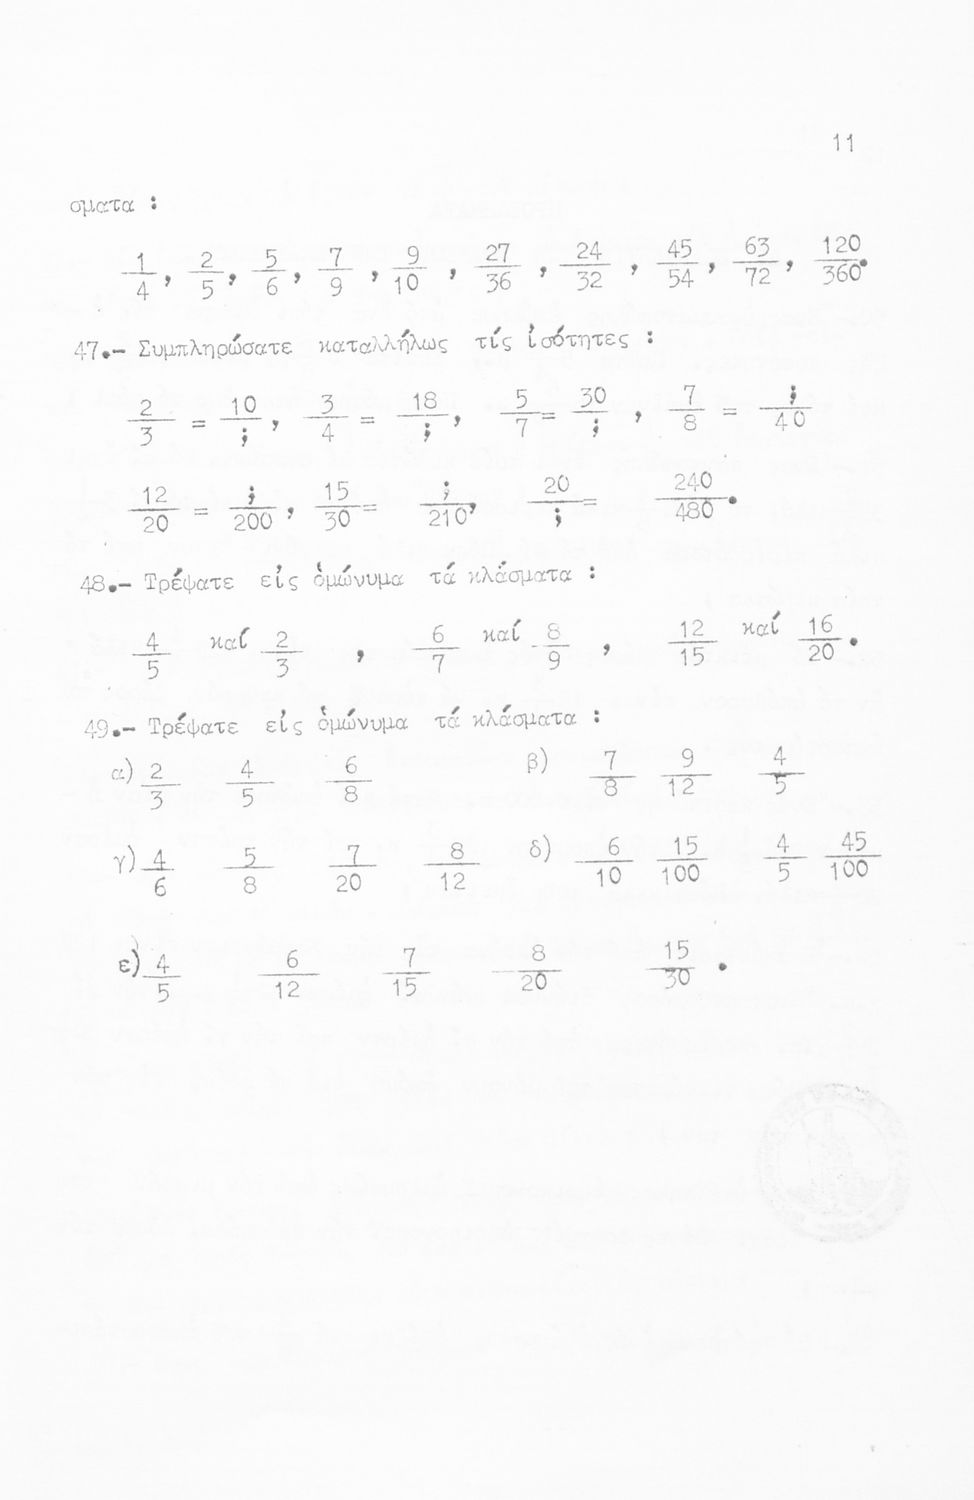 11
σματα :
1/4 , 2/5 , 5/6 , 7/9 , 9/10 , 27/36 , 24/32 , 45/54 , 63/72 , 120/360.
47.- Συμπληρώσατε καταλλήλως τίς ἰσότητες :
2/3 = 10/; , 3/4 = 18/; , 5/7 = 30/; , 7/8 = ;/40
12/20 = ;/200 , 15/30 = ;/210 , 20/; = 240/480 .
48.- Τρέψατε εἰς ὁμώνυμα τά κλάσματα :
4/5 καί 2/3 , 6/7 καί 8/9 , 12/15 καί 16/20 .
49.- Τρέψατε εἰς ὁμώνυμα τά κλάσματα :
α) 2/3 4/5 6/8 β) 7/8 9/12 4/5
γ) 4/6 5/8 7/20 8/12 δ) 6/10 15/100 4/5 45/100
ε) 4/5 6/12 7/15 8/20 15/30 .